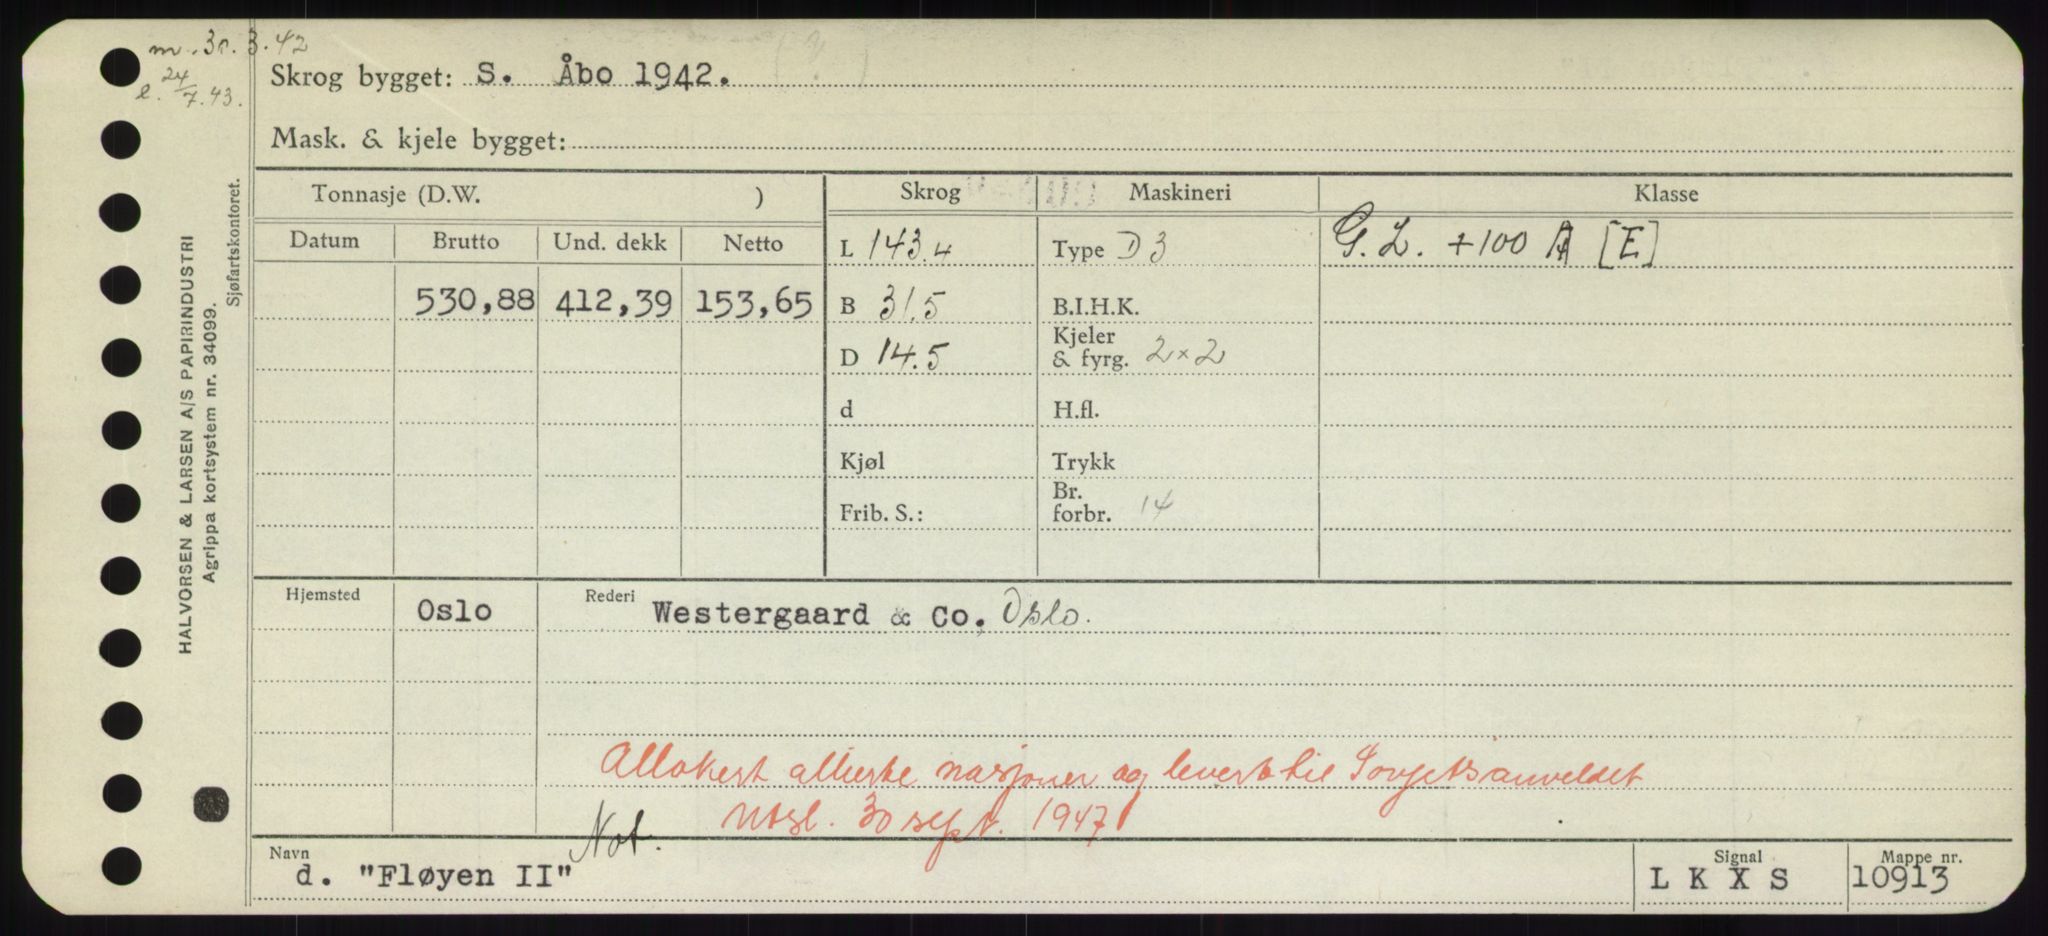 m. 30.3.42
e. 24/7.43.
Skrog bygget: S. Åbo 1942.
Mask. & kjele bygget:
HALVORSEN & LARSEN A/S PAPIRINDUSTRI
Agrippa kortsystem nr. 34099.
Sjøfartskontoret.
Tonnasje (D.W. ) Skrog Maskineri Klasse
Datum Brutto Und. dekk Netto L 143.4 Type D 3 G.L. +100 A [E]
530,88 412,39 153,65 B 31.5 B.I.H.K.
D 14.5 Kjeler & fyrg. 2x2
d H.fl.
Kjøl Trykk
Frib. S.: Br. forbr. 14
Hjemsted Oslo Rederi Westergaard & Co. Oslo.
Allokert allierte nasjoner og levert til Sovjetsamveldet
Utsl. 30 sept. 1947
Not.
Navn Signal Mappe nr.
d. "Fløyen II" L K X S 10913